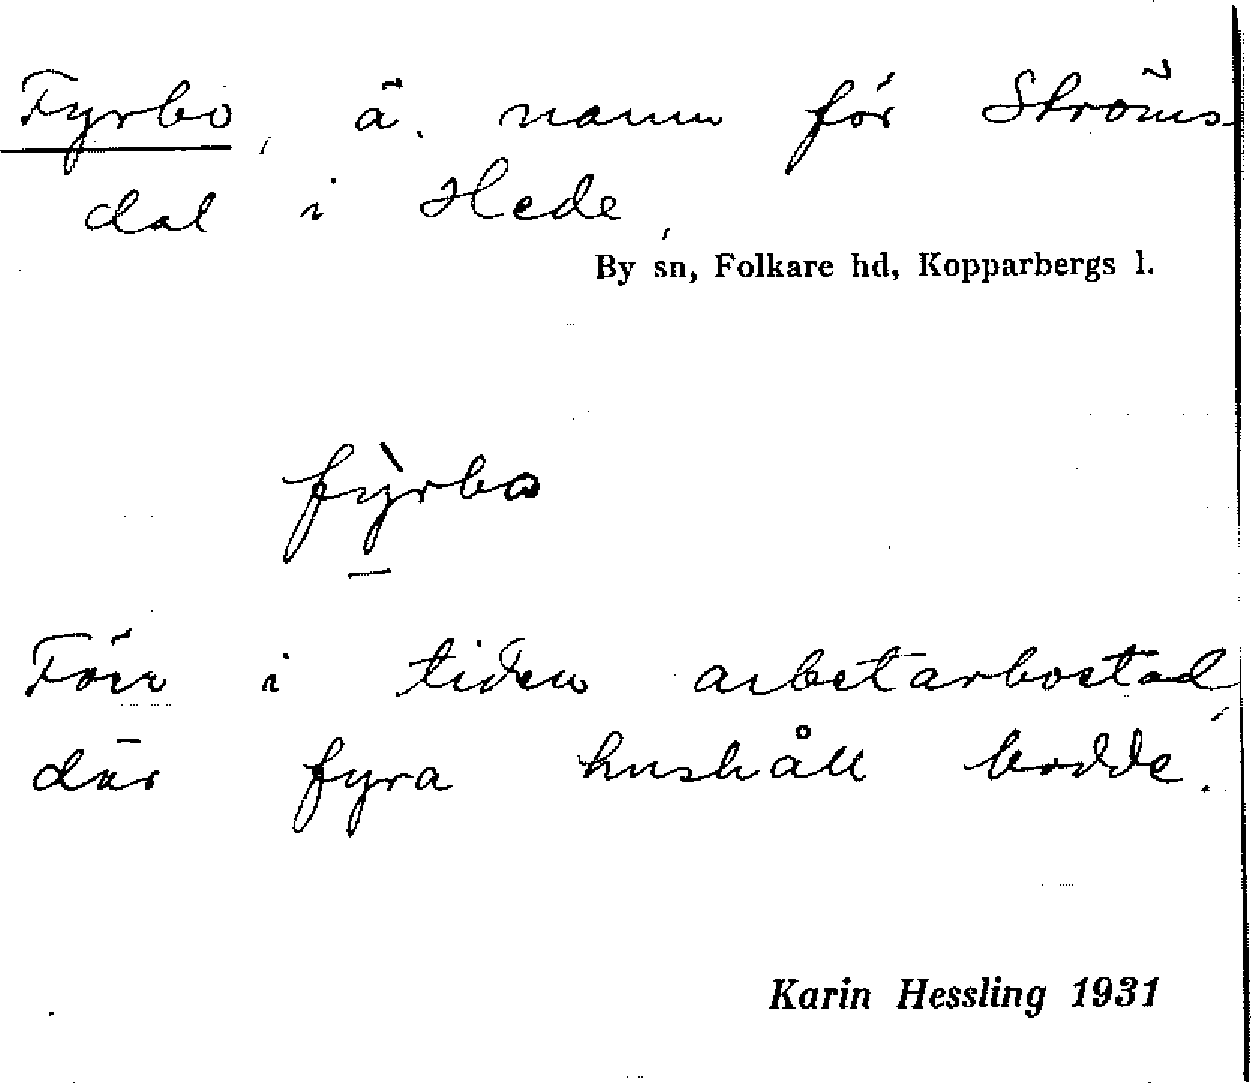 Fyrbo, ä. namn för Ströms-
dal i Hede,
By sn, Folkare hd, Kopparbergs l.
fỳ̠rbo
Förr i tiden arbetarbostad,
där fyra hushåll bodde.
Karin Hessling 1931